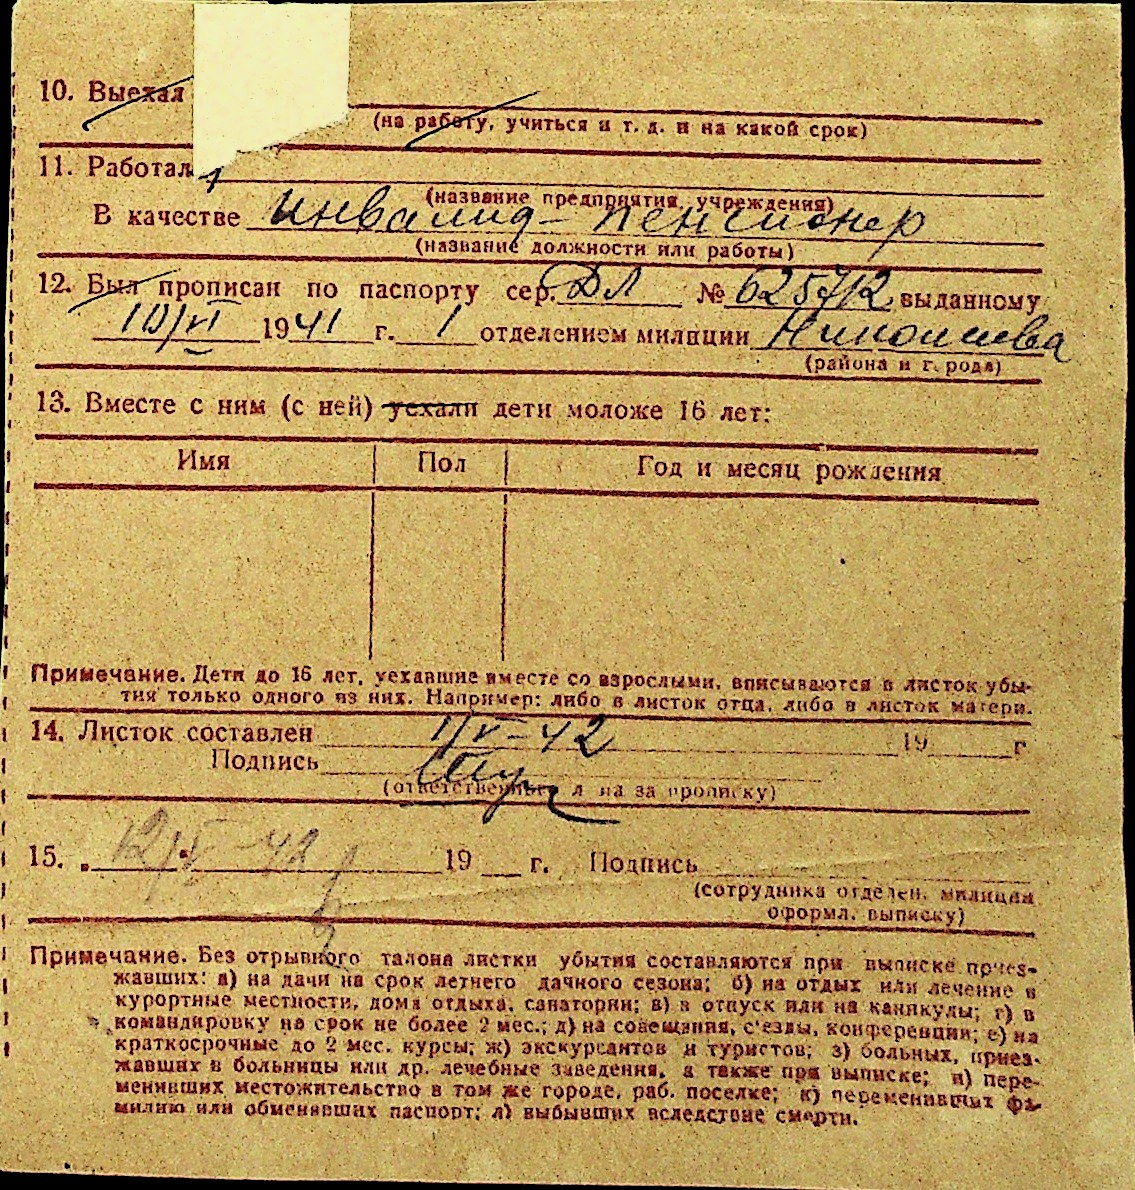 10. Выехал
(на работу, учиться и т. д. и на какой срок)
11. Работал
(название предприятия, учреждения)
В качестве инвалид - пенсионер
(название должности или работы)
12. Был прописан по паспорту сер. ДЛ № 625712 выданному
10/VI 1941 г. 1 отделением милиции
(района и города)
13. Вместе с ним (с ней) уехали дети моложе 16 лет:
Имя Пол Год и месяц рождения
Примечание. Дети до 16 лет, уехавшие вместе со взрослыми, вписываются в листок убы-
тия только одного из них. Например: либо в листок отца, либо в листок матери.
14. Листок составлен 1/V-42 19 г
Подпись
(ответственного л на за прописку)
15. 12/V-42 19 г. Подпись
(сотрудника отделен. милиции
оформл. выписку)
Примечание. Без отрывного талона листки убытия составляются при выписке приез-
жавших: а) на дачи на срок летнего дачного сезона; б) на отдых или лечение в
курортные местности, дома отдыха, санатории; в) в отпуск или на каникулы; г) в
командировку на срок не более 2 мес.; д) на совещания, с'езды, конференции; е) на
краткосрочные до 2 мес. курсы; ж) экскурсантов и туристов; з) больных, приез-
жавших в больницы или др. лечебные заведения, а также при выписке; и) пере-
менивших местожительство в том же городе, раб. поселке; к) переменивших фа-
милию или обменявших паспорт; л) выбывших вследствие смерти.